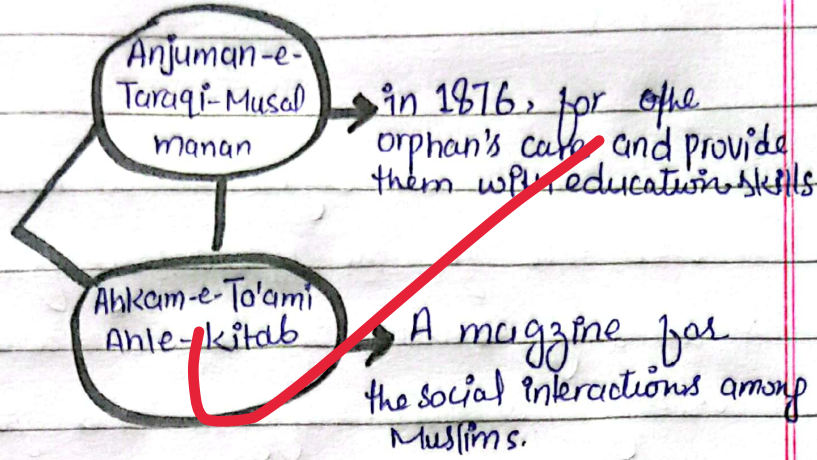 Anjuman-e-
Taraqi-Musal
manan
in 1876, for
orphan's care and provide
them with education skills
Ahkam-e-To'ami
Ahle-kitab
A magzine for
the social interactions among
Muslims.